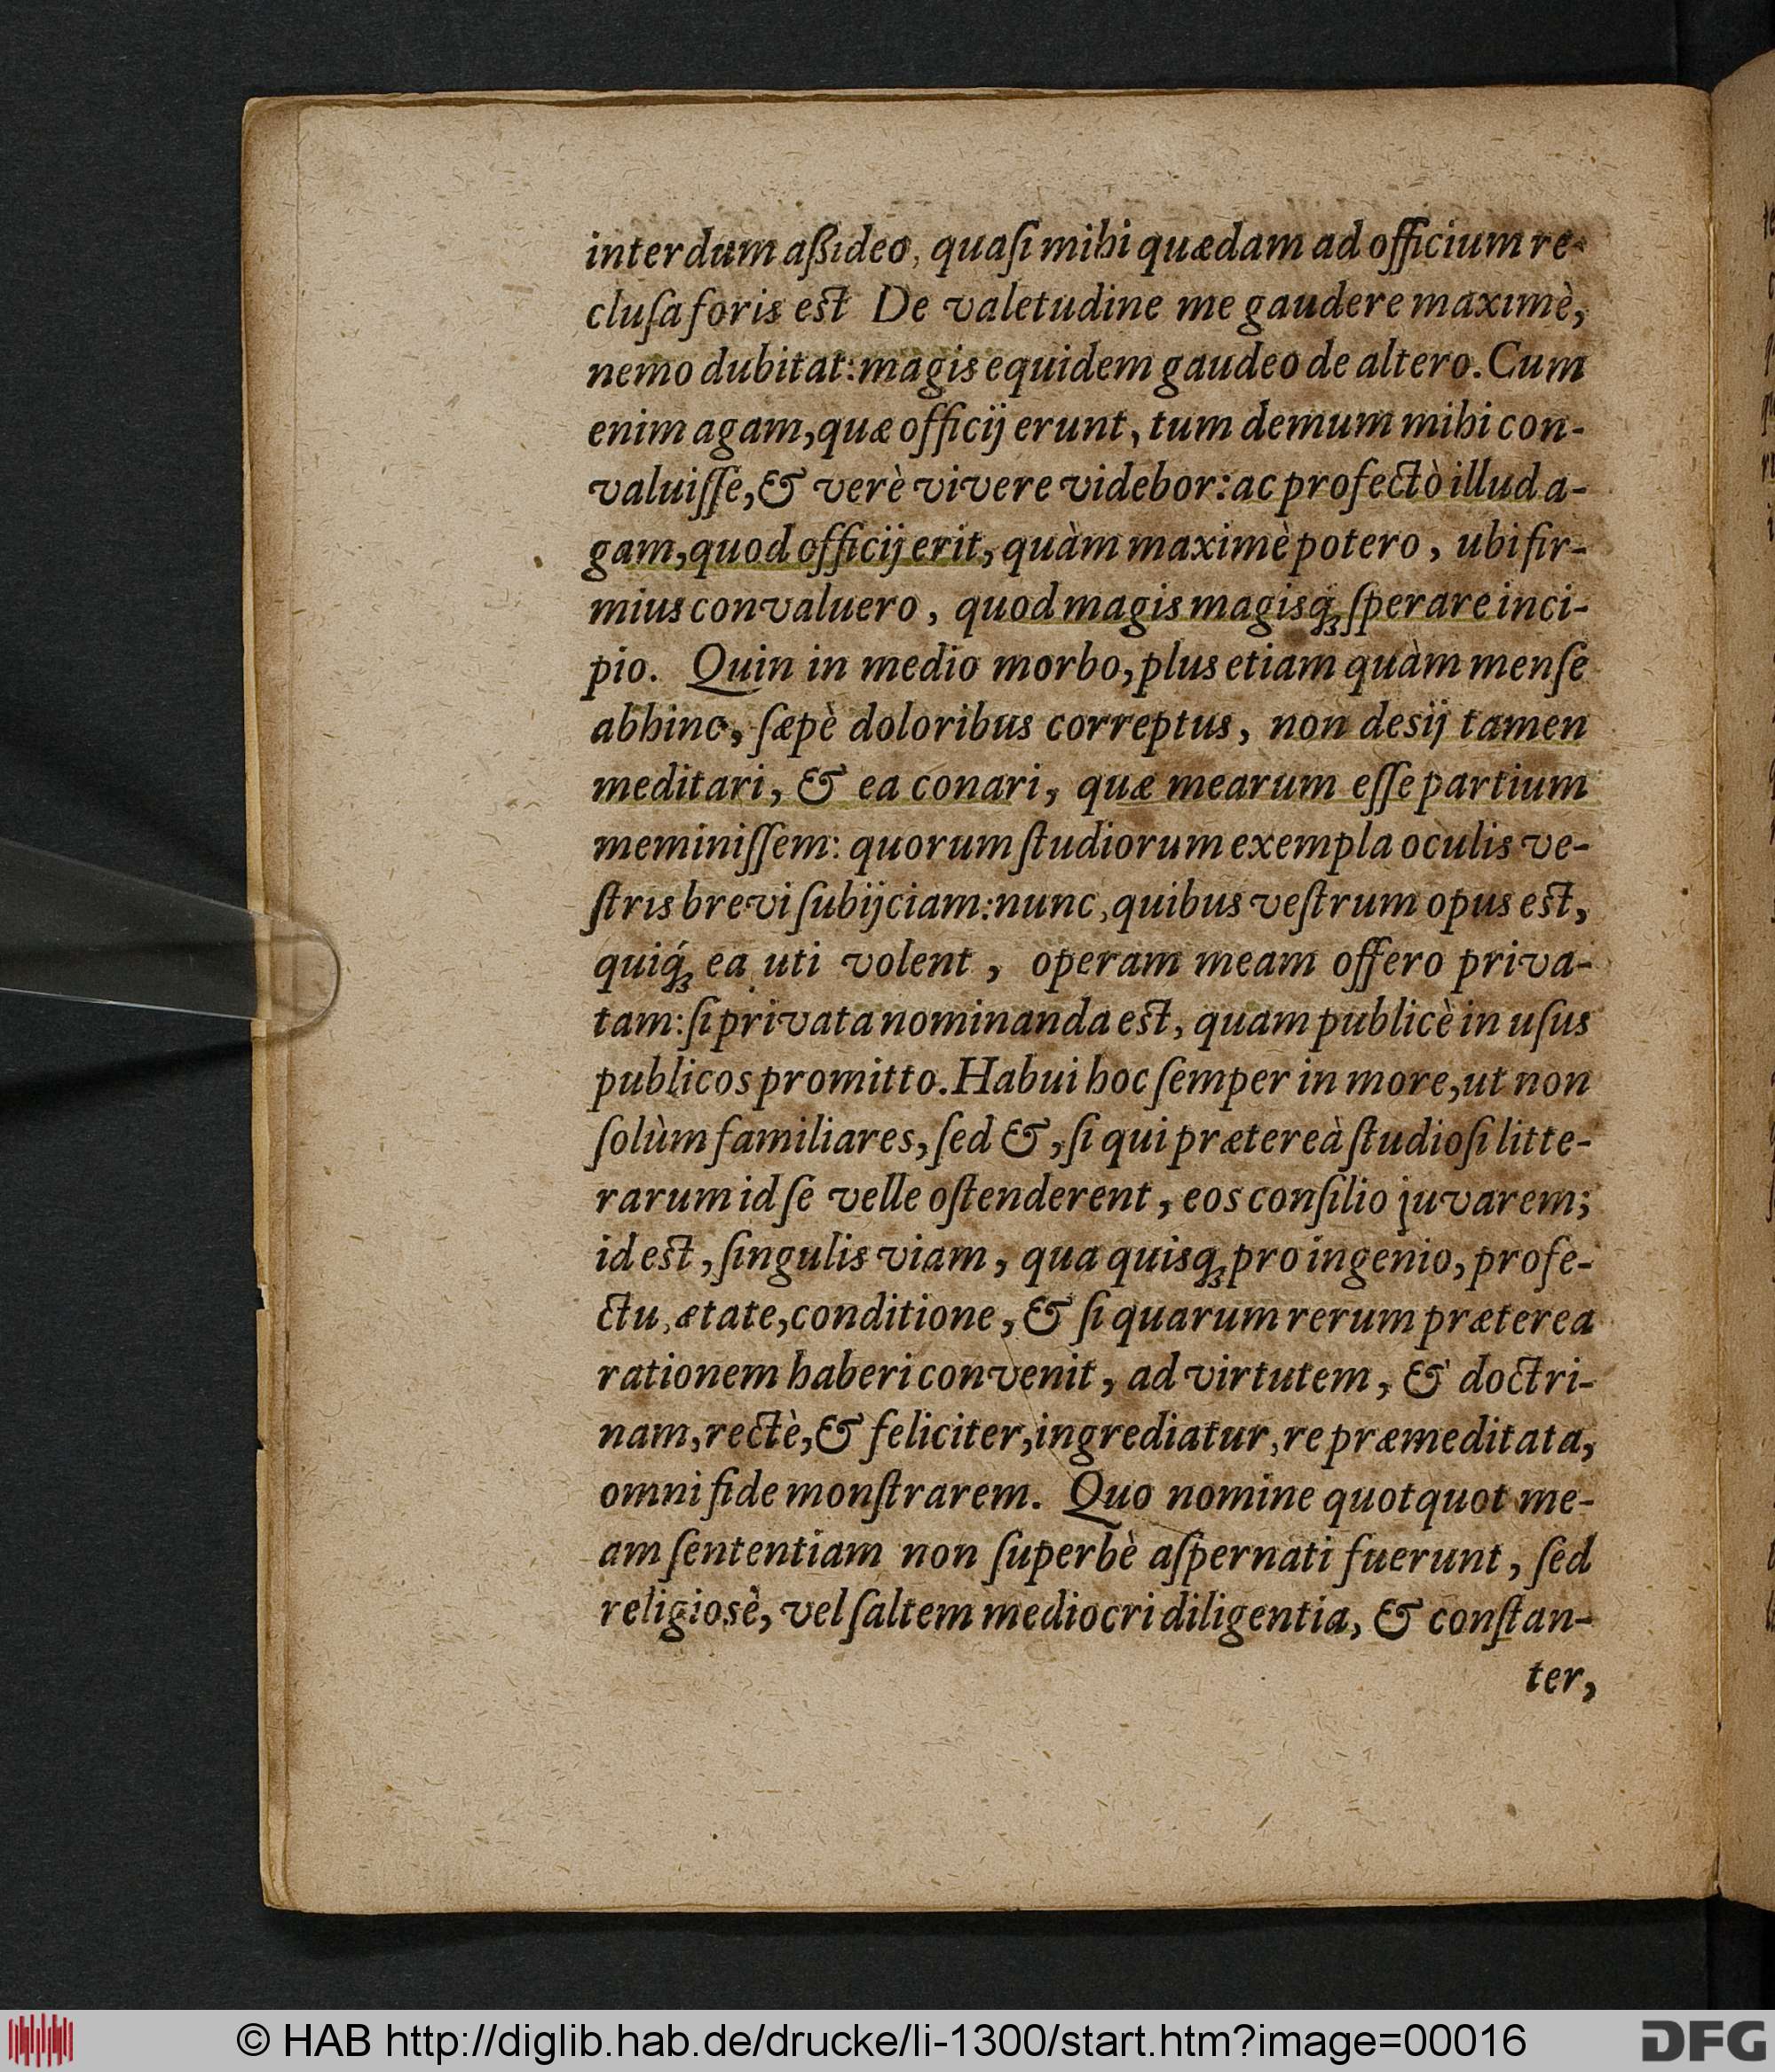 interdum aßideo, quaſi mihi quædam ad officium re-
cluſa foris est De valetudine me gaudere maximè,
nemo dubitat: magis equidem gaudeo de altero. Cum
enim agam, quæ officij erunt, tum demum mihi con-
valuiſſe, & verè vivere videbor: ac profectò illud a-
gam, quod officij erit, quàm maximè potero, ubi fir-
mius convaluero, quod magis magisq́ꝫ ſperare inci-
pio. Quin in medio morbo, plus etiam quàm menſe
abhinc, ſæpè doloribus correptus, non desij tamen
meditari, & ea conari, quæ mearum eſſe partium
meminiſſem: quorum ſtudiorum exempla oculis ve-
ſtris brevi ſubijciam: nunc, quibus veſtrum opus est,
quiq́ꝫ ea uti volent, operam meam offero priva-
tam: ſi privata nominanda est, quam publicè in uſus
publicos promitto. Habui hoc ſemper in more, ut non
ſolùm familiares, ſed &, ſi qui prætereà ſtudioſi litte-
rarum id ſe velle oſtenderent, eos conſilio juvarem;
id est, ſingulis viam, qua quisqꝫ pro ingenio, profe-
ctu, ætate, conditione, & ſi quarum rerum præterea
rationem haberi convenit, ad virtutem, & doctri-
nam, rectè, & feliciter, ingrediatur, re præmeditata,
omni fide monſtrarem. Quo nomine quotquot me-
am ſententiam non ſuperbè aſpernati fuerunt, ſed
religiosè, vel ſaltem mediocri diligentia, & conſtan-
ter,
© HAB http://diglib.hab.de/drucke/li-1300/start.htm?image=00016
DFG